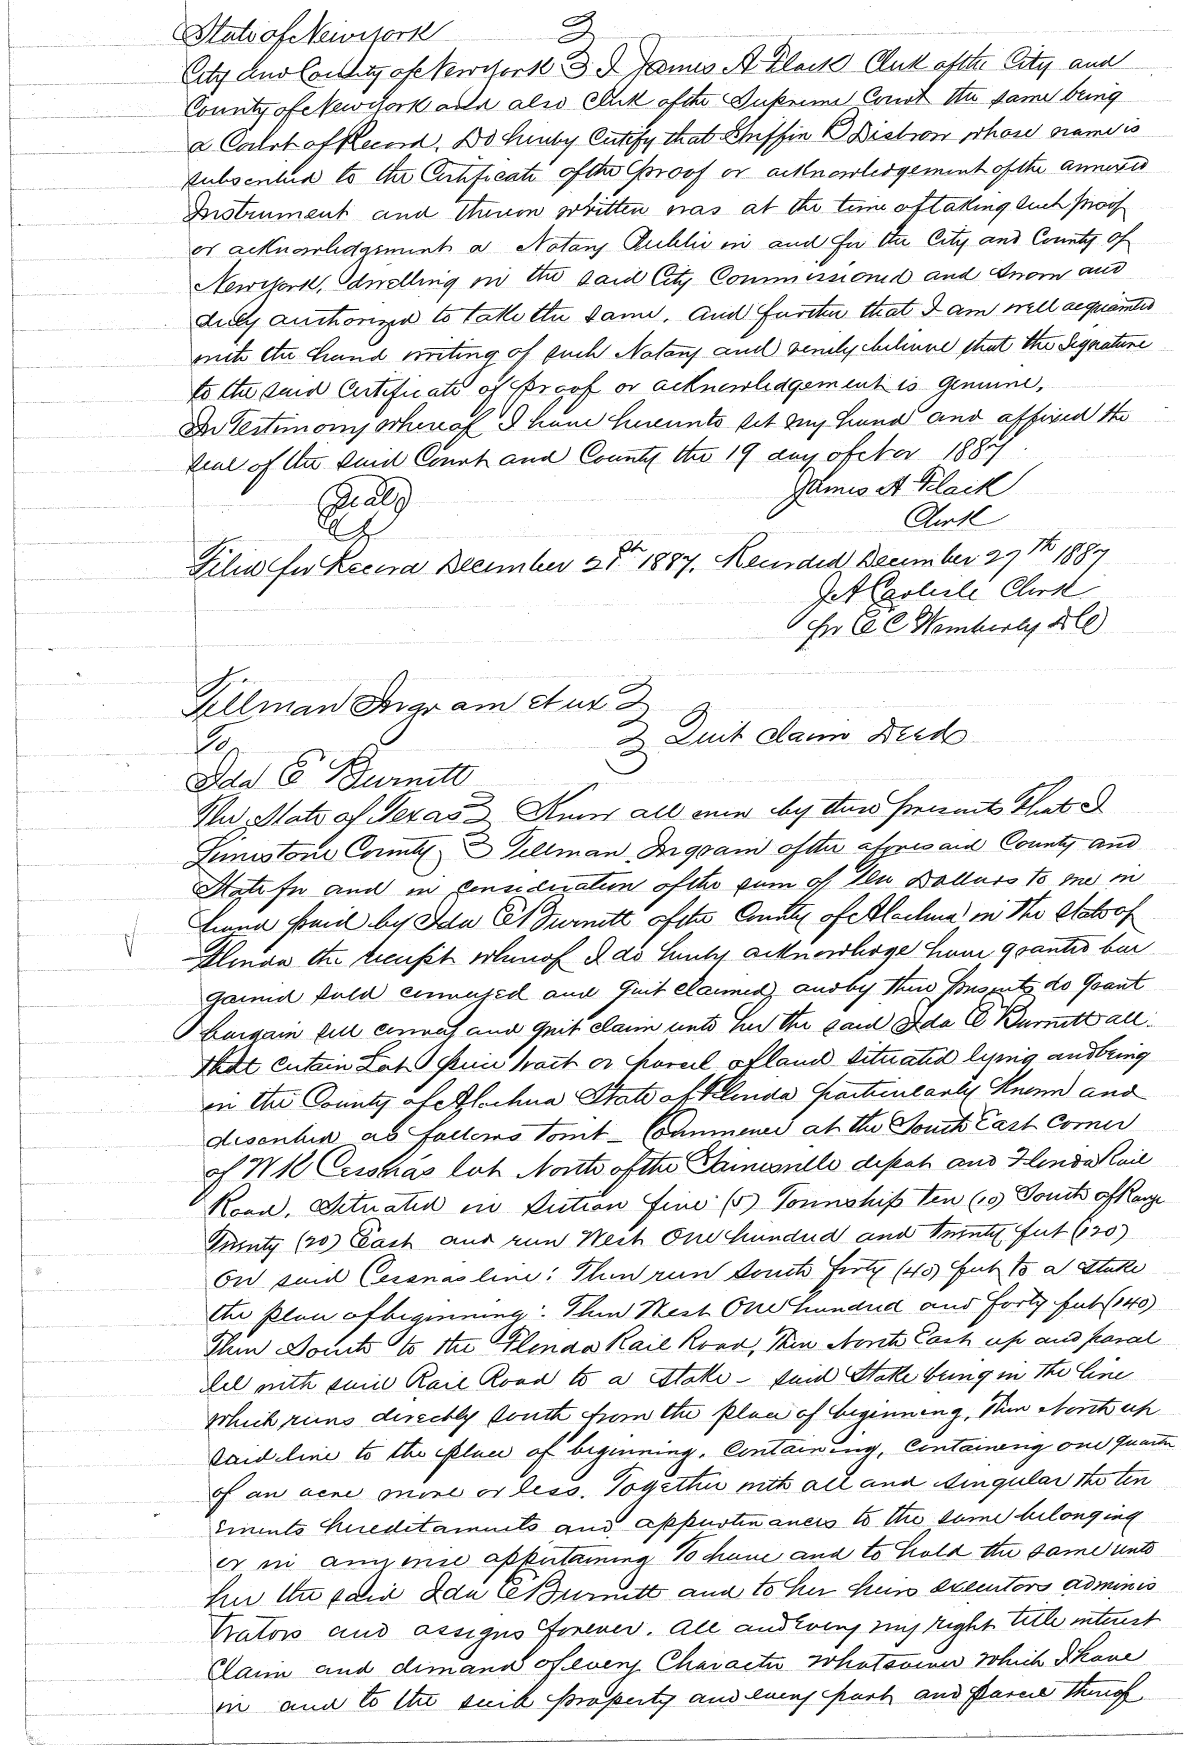 State of New York
City and County of New York I James A Flack Clerk of the City and
County of New York and also Clerk of the Supreme Court the same being
a Court of Record. Do hereby Certify that Griffin B Disbrow whose name is
subscribed to the Certificate of the proof or acknowledgement of the annexed
Instrument and thereon written was at the time of taking such proof
or acknowledgement a Notary Public in and for the City and County of
New York, dwelling in the said City Commissioned and sworn and
duly authorized to take the same. And further that I am well acquainted
with the hand writing of such Notary and verily believe that the Signature
to the said Certificate of proof or acknowledgement is genuine.
In Testimony whereof I have hereunto set my hand and affixed the
seal of the said Court and County the 19 day of 1887.
Seal James A Flack
Clerk
Filed for Record December 21st 1887. Recorded December 27th 1887
J A Carlisle Clerk
for E C Wimberly D C
Tillman Ingram et ux
To Quit claim Deed
Ida E Burnett
The State of Texas Know all men by these presents that I
Limestone County Tillman Ingram of the aforesaid County and
State for and in consideration of the sum of Ten Dollars to me in
hand paid by Ida E Burnett of the County of Alachua in the State of
Florida the receipt whereof I do hereby acknowledge have granted bar
gained sold conveyed and quit claimed and by these presents do grant
bargain sell convey and quit claim unto her the said Ida E Burnett all
that certain Lot piece tract or parcel of land situated lying and being
in the County of Alachua State of Florida particularly known and
described as follows towit - Commence at the South East Corner
of W K Cessnas lot North of the Gainesville depot and Florida Rail
Road. Situated in Section five (5) Township Ten (10) South of Range
Twenty (20) East and run West One hundred and Twenty feet (120)
on said Cessnas line: Then run South forty (40) feet to a stake
the place of beginning: Then West One hundred and forty feet (140)
Then South to the Florida Rail Road, Then North East up and paral
lel with said Rail Road to a stake - said Stake being in the line
which runs directly south from the place of beginning, Then North up
said line to the place of beginning. Containing, containing one quarter
of an acre more or less. Together with all and singular the ten
ements hereditaments and appurtenances to the same belonging
or in any wise appertaining To have and to hold the same unto
her the said Ida E Burnett and to her heirs executors adminis
trators and assigns forever. All and every my right title interest
Claim and demand of every Character whatsoever which I have
in and to the said property and every part and parcel thereof